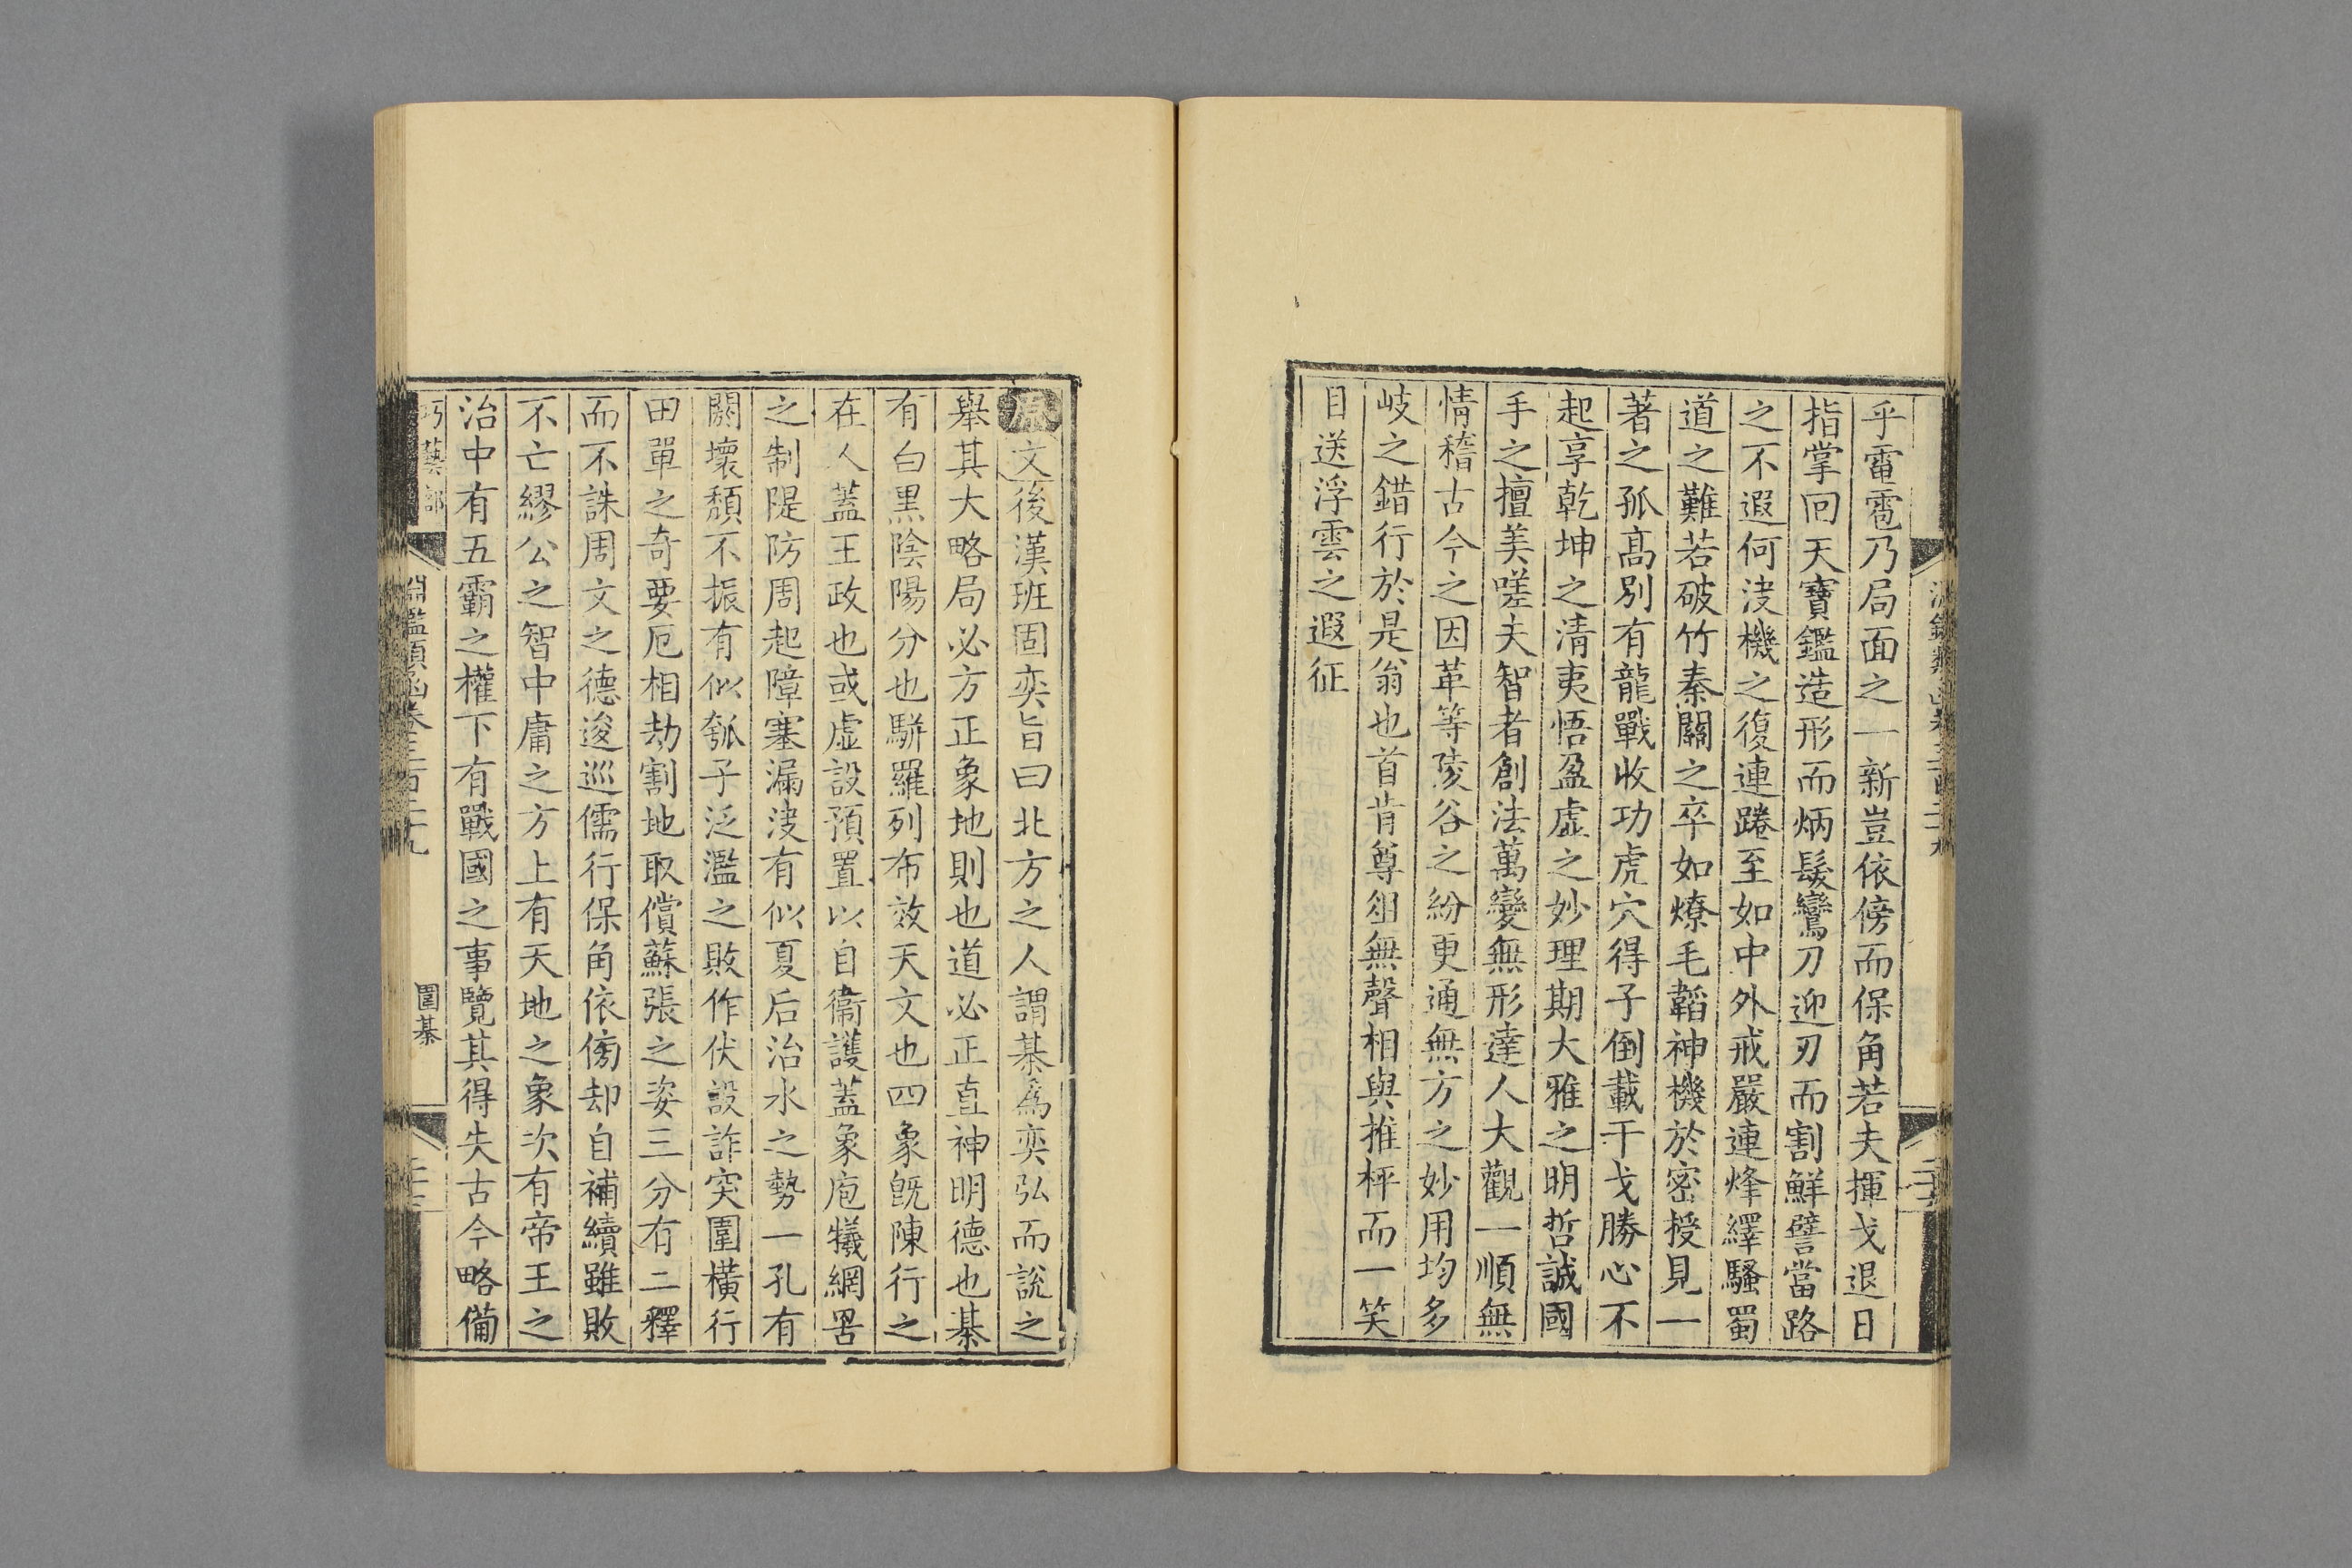 乎電雹乃局面之一新豈依傍而保角若夫揮戈退日
指掌回天寶鑑造形而炳髮鸞刀迎刃而割鮮譬當路
之不遐何沒機之復連踡至如中外戒嚴連烽繹騷蜀
道之難若破竹秦關之卒如燎毛韜神機於密授見一
著之孤高別有龍戰收功虎穴得子倒載干戈勝心不
起享乾坤之清夷悟盈虛之妙理期大雅之明哲誠國
手之擅美嗟夫智者創法萬變無形達人大觀一順無
情稽古今之因革等陵谷之紛更通無方之妙用均多
岐之錯行於是翁也首肯尊俎無聲相與推枰而一笑
目送浮雲之遐征
原文後漢班固奕旨曰北方之人謂棊為奕弘而說之
舉其大略局必方正象地則也道必正直神明德也棊
有白黑陰陽分也駢羅列布效天文也四象旣陳行之
在人蓋王政也或虛設預置以自衞護蓋象庖犧網罟
之制隄防周起障塞漏決有似夏后治水之勢一孔有
闕壞頹不振有似瓠子泛濫之敗作伏設詐突圍橫行
田單之奇要厄相劫割地取償蘇張之姿三分有二釋
而不誅周文之德逡巡儒行保角依傍却自補續雖敗
不亡繆公之智中庸之方上有天地之象次有帝王之
治中有五霸之權下有戰國之事覽其得失古今略備
巧藝部
淵鑑類函卷三百二十九
圍棊